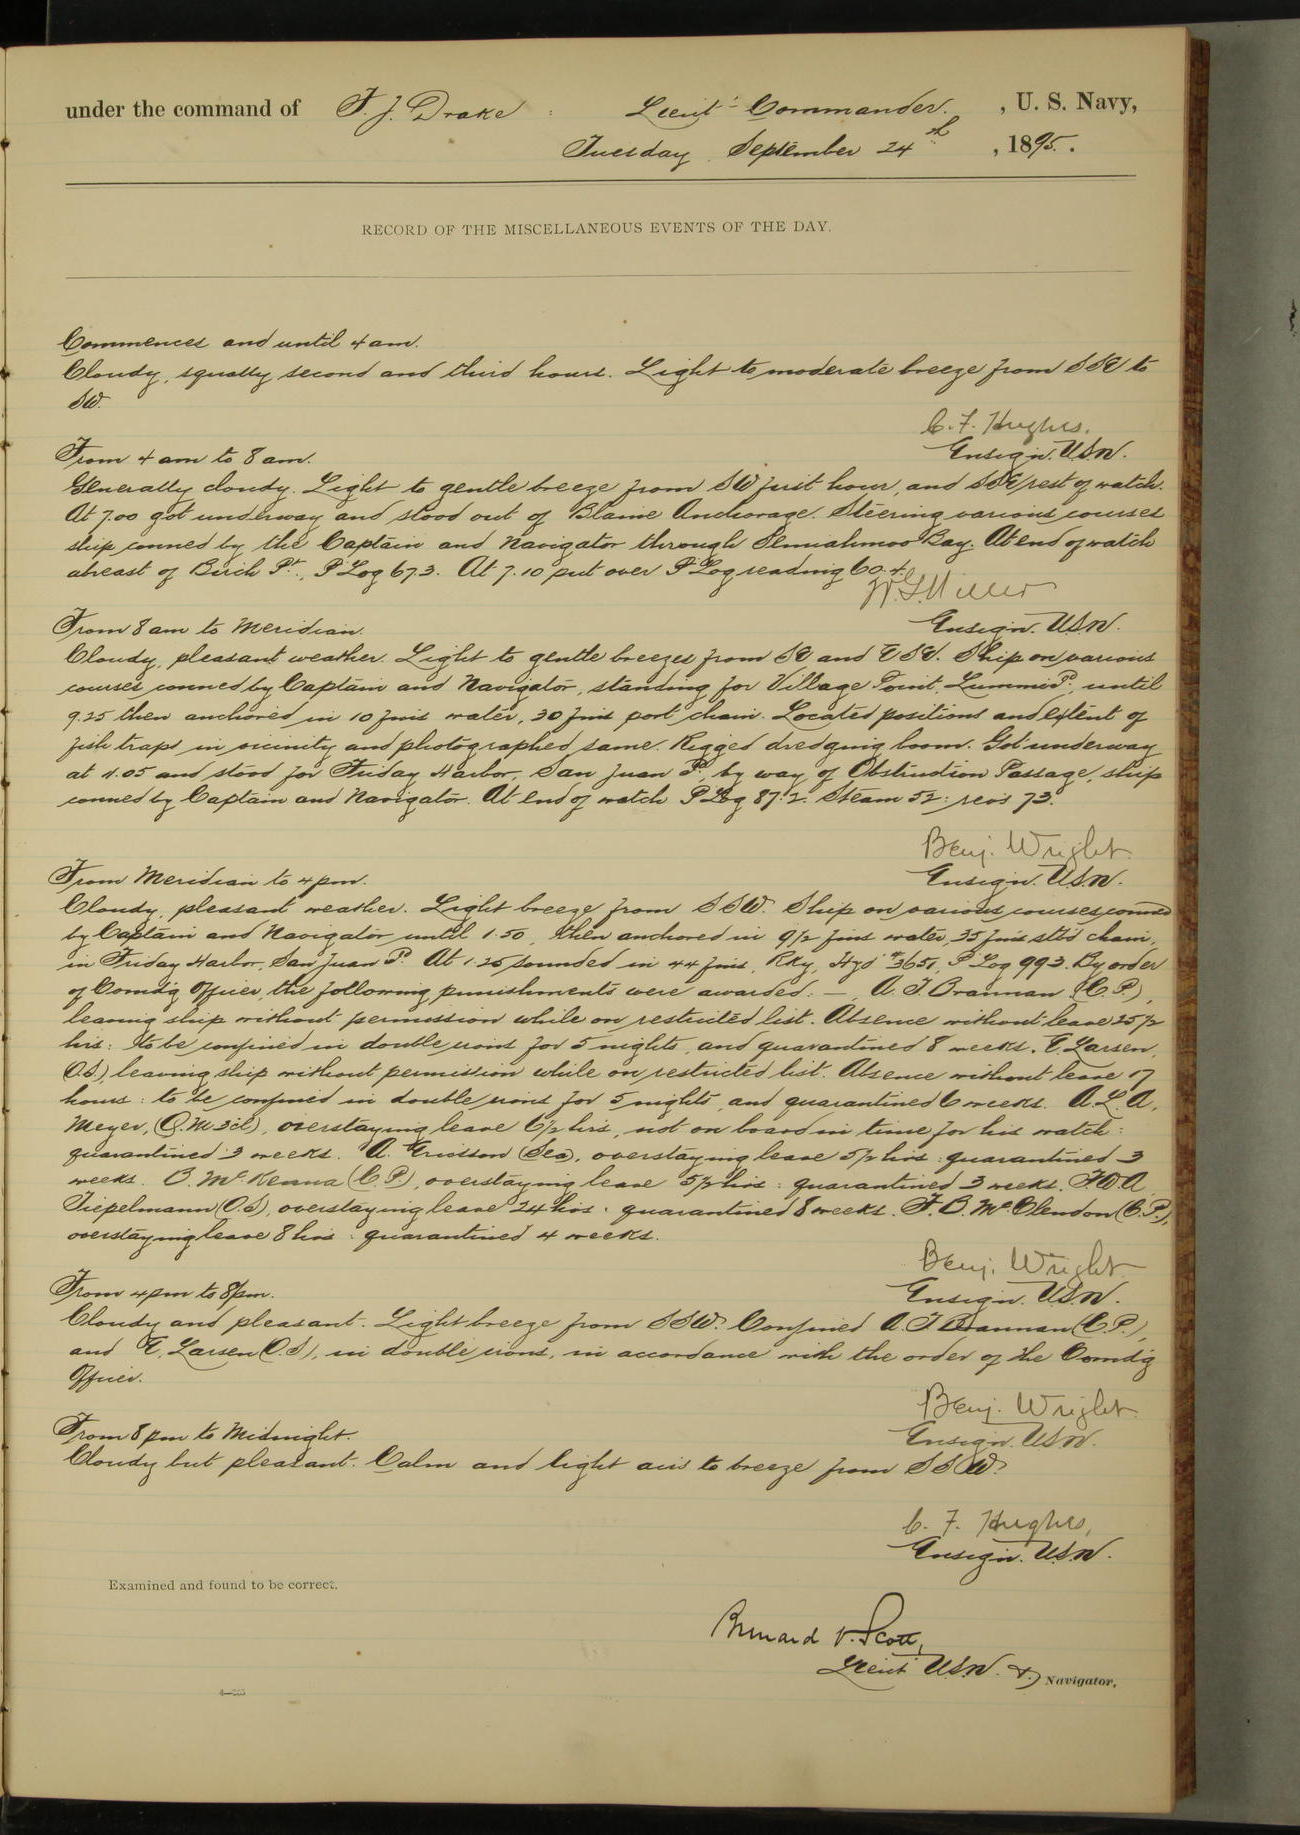 under the command of F. J. Drake : Lieut. Commander. , U. S. Navy,
Tuesday, September 24th , 1895. .
RECORD OF THE MISCELLANEOUS EVENTS OF THE DAY.
Commences and until 4 am.
Cloudy, squally second and third hours. Light to moderate breeze from SSE to
SW.
C. F. Hughes,
Ensign. U.S.N.
From 4 am to 8 am.
Generally cloudy. Light to gentle breeze from SW first hour, and SSE rest of watch.
At 7.00 got underway and stood out of Blaine Anchorage. Steering various courses
ship conned by the Captain and Navigator through Semiahmoo Bay. At end of watch
abreast of Birch Pt., P Log 67.3. At 7.10 put over P Log reading 60.4
W. G. Miller
Ensign. U.S.N.
From 8 am to Meridian.
Cloudy, pleasant weather. Light to gentle breezes from SE and ESE. Ship on various
courses conned by Captain and Navigator, standing for Village Point, Lummi Id., until
9.25 then anchored in 10 fms water, 30 fms port chain. Located positions and extent of
fish traps in vicinity and photographed same. Rigged dredging boom. Got underway
at 11.05 and stood for Friday Harbor, San Juan Id., by way of Obstruction Passage, ship
conned by Captain and Navigator. At end of watch P Log 87.2. Steam 52: revs 73.
Benj. Wright.
Ensign. U.S.N.
From Meridian to 4 pm.
Cloudy, pleasant weather. Light breeze from SSW. Ship on various courses conned
by Captain and Navigator until 1.50, then anchored in 9 1/2 fms water, 35 fms stb'd chain,
in Friday Harbor, San Juan Id. At 1.25 sounded in 44 fms, Rky, Hyd #3651, P Log 99.3. By order
of Comdg Officer, the following punishments were awarded: — A. J. Brannan (C.P.),
leaving ship without permission while on restricted list. Absence without leave 25 1/2
hrs: to be confined in double irons for 5 nights, and quarantined 8 weeks. E. Larsen,
(O.S.), leaving ship without permission while on restricted list. Absence without leave 17
hours: to be confined in double irons for 5 nights, and quarantined 6 weeks. A. L. A.
Meyer, (Q.M. 3cl), overstaying leave 6 1/2 hrs, not on board in time for his watch:
quarantined 3 weeks. A. Ericsson (Sea), overstaying leave 5 1/2 hrs: quarantined 3
weeks. O. McKenna (C.P.), overstaying leave 5 1/2 hrs: quarantined 3 weeks. F. W. A.
Tiepelmann (O.S), overstaying leave 24 hrs: quarantined 8 weeks. F. B. McClendon (C.P.),
overstaying leave 8 hrs: quarantined 4 weeks.
Benj. Wright.
Ensign. U.S.N.
From 4 pm to 8 pm.
Cloudy and pleasant. Light breeze from SSW. Confined A. J. Brannan (C.P.),
and E. Larsen (O.S), in double irons, in accordance with the order of the Comdg
Officer.
Benj. Wright.
Ensign. U.S.N.
From 8 pm to Midnight.
Cloudy but pleasant. Calm and light airs to breeze from SSW.
C. F. Hughes,
Ensign. U.S.N.
Examined and found to be correct.
Bernard O. Scott,
Lieut U.S.N. & Navigator.